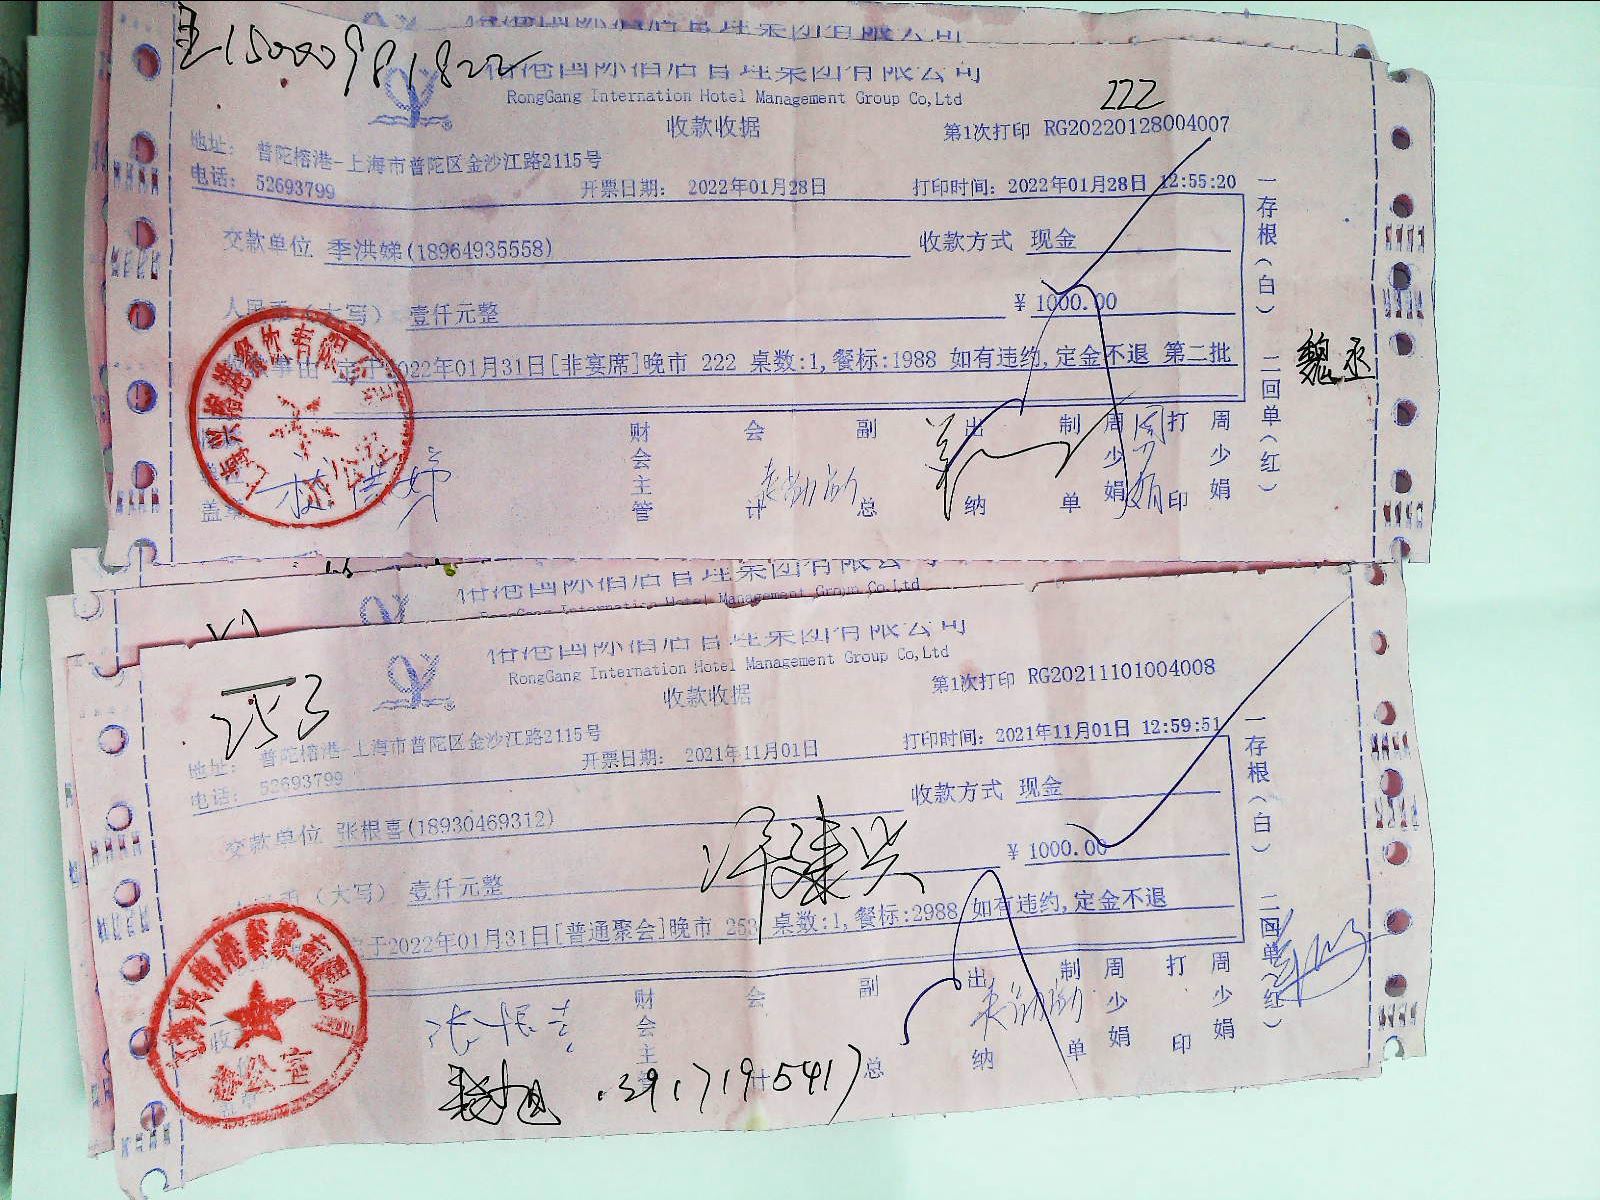 王15000981822
榕港国际酒店管理集团有限公司
RongGang Internation Hotel Management Group Co,Ltd
222
收款收据
第1次打印 RG20220128004007
地址: 普陀榕港-上海市普陀区金沙江路2115号
电话: 52693799
开票日期: 2022年01月28日
打印时间: 2022年01月28日 12:55:20
交款单位 季洪娣(18964935558)
收款方式 现金
人民币(大写) 壹仟元整
¥ 1000.00
定于2022年01月31日[非宴席]晚市 222 桌数:1,餐标:1988 如有违约,定金不退 第二批
一存根(白) 二回单(红)
魏丞
财会主管
会计
副总
出纳
制单
周少娟
打印
周少娟
盖章
榕港国际酒店管理集团有限公司
RongGang Internation Hotel Management Group Co,Ltd
253
收款收据
第1次打印 RG20211101004008
地址: 普陀榕港-上海市普陀区金沙江路2115号
电话: 52693799
开票日期: 2021年11月01日
打印时间: 2021年11月01日 12:59:51
交款单位 张根喜(18930469312)
收款方式 现金
(大写) 壹仟元整
¥ 1000.00
定于2022年01月31日[普通聚会]晚市 253 桌数:1,餐标:2988 如有违约,定金不退
一存根(白) 二回单(红)
财会主管
会计
副总
出纳
制单
周少娟
打印
周少娟
张根喜
办公室
13917195417